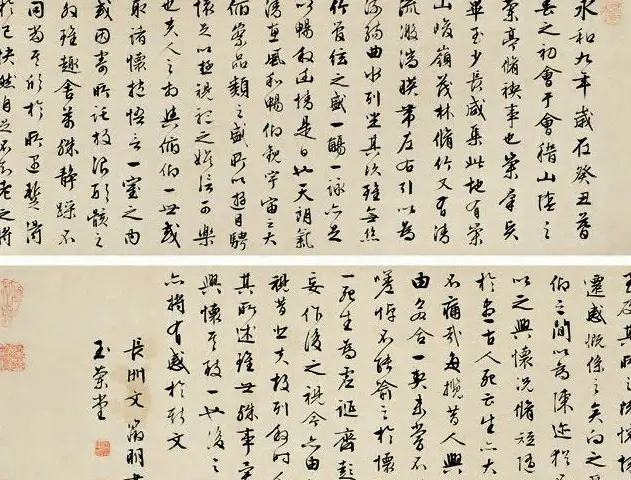 永和九年歲在癸丑暮
春之初會于會稽山陰之
蘭亭脩禊事也羣賢
畢至少長咸集此地有崇
山峻嶺茂林脩竹又有清
流激湍映帶左右引以為
流觴曲水列坐其次雖無絲
竹管弦之盛一觴一詠亦足
以暢敘幽情是日也天朗氣
清惠風和暢仰觀宇宙之大
俯察品類之盛所以遊目騁
懷足以極視聽之娛信可樂
也夫人之相與俯仰一世或
取諸懷抱悟言一室之內
或因寄所託放浪形骸之
外雖趣舍萬殊靜躁不
同當其欣於所遇蹔得
於己快然自足不知老之將
至及其所之既惓情
遷感慨係之矣向之所
俛仰之間以為陳迹猶
以之興懷況脩短隨
於盡古人云死生亦大
不痛哉每攬昔人興
由若合一契未嘗不
嗟悼不能喻之於懷
一死生為虛誕齊彭
妄作後之視今亦由
視昔悲夫故列敘時人
其所述雖世殊事異
興懷其致一也後之
亦將有感於斯文
長洲文徵明書
玉蘭堂